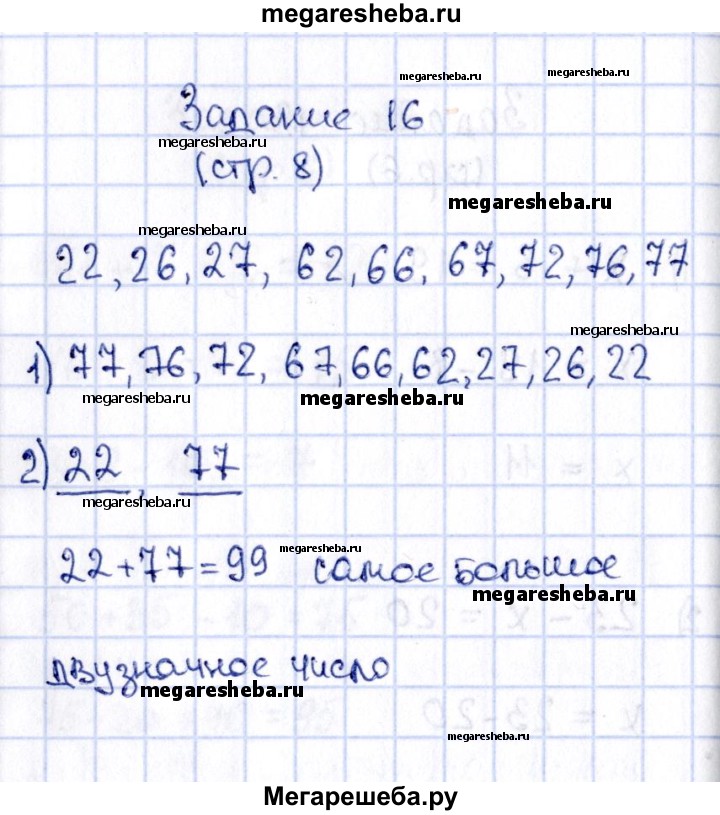 megaresheba.ru
megaresheba.ru megaresheba.ru
Задание 16
megaresheba.ru
(стр. 8)
megaresheba.ru
megaresheba.ru
22, 26, 27, 62, 66, 67, 72, 76, 77
megaresheba.ru
1) 77, 76, 72, 67, 66, 62, 27, 26, 22
megaresheba.ru megaresheba.ru
2) 22, 77
megaresheba.ru
megaresheba.ru
22+77=99 самое большое
megaresheba.ru
двузначное число
megaresheba.ru
megaresheba.ru
Мегарешеба.ру